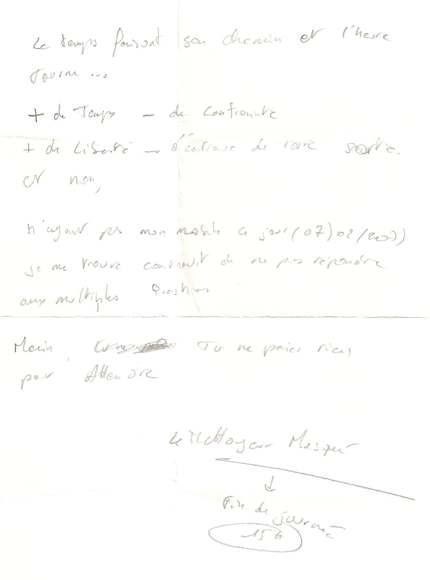 Le temps faisant son chemin et l'heure
tourne ...
+ de Temps - de Confronté
+ de Liberté - de toute sortie.
et non,
N'ayant pas mon mobile ce jour (07) 02/2011)
je me trouve contraint de ne pas répondre
aux multiples Questions
Tu ne paies rien
pour Attendre
Le Nettoyeur Masqué
↓
Fin de journée
15 h